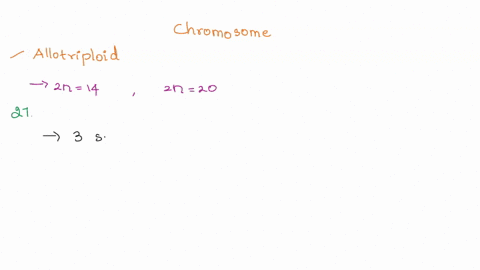 Chromosome
Allotriploid
→ 2n = 14 , 2n = 20
27.
→ 3 s.